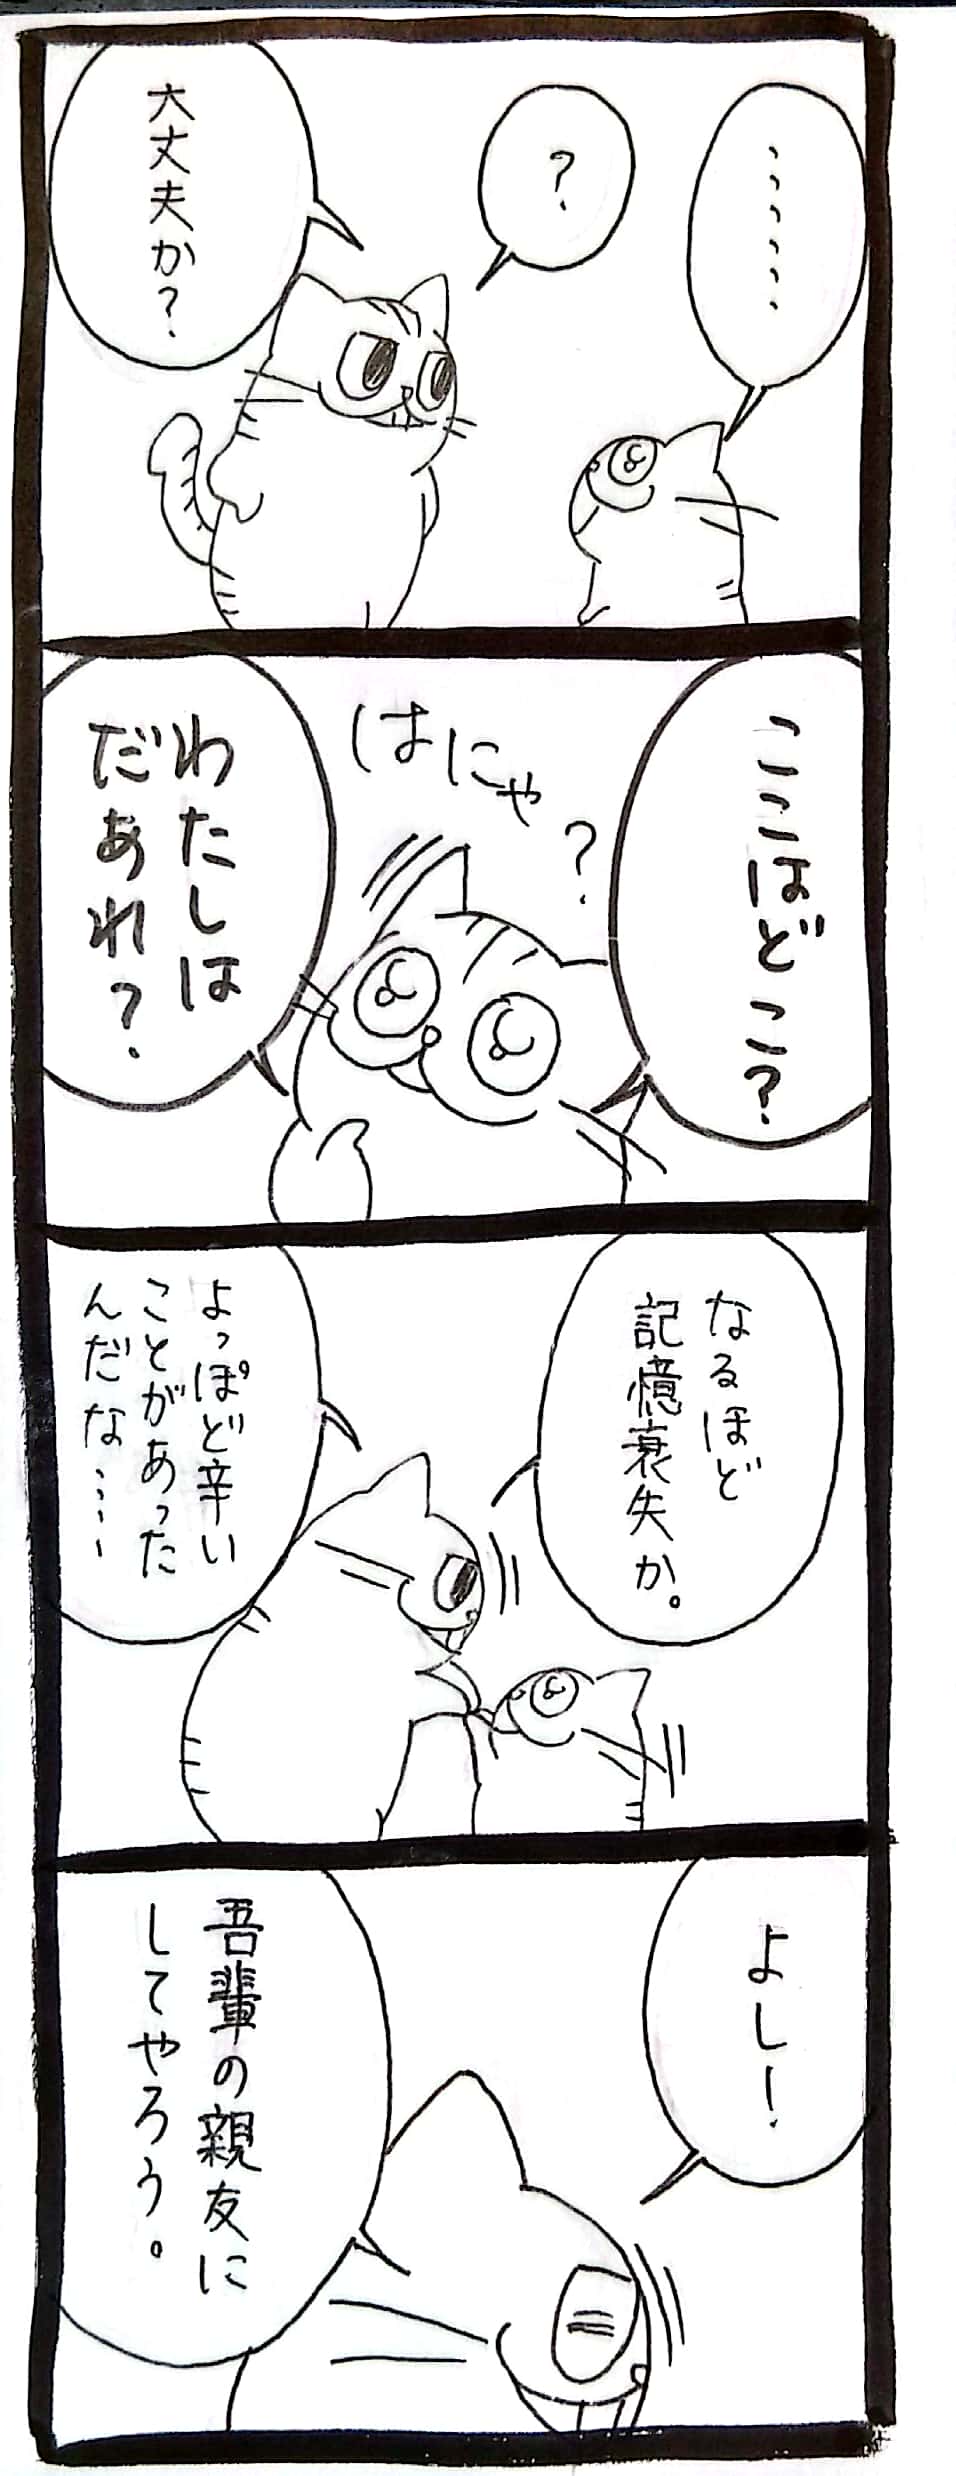 ……
?
大丈夫か?
ここはどこ?
はにゃ?
わたしは
だあれ?
なるほど
記憶衰失か。
よっぽど辛い
ことがあった
んだな……
よし!
吾輩の親友に
してやろう。